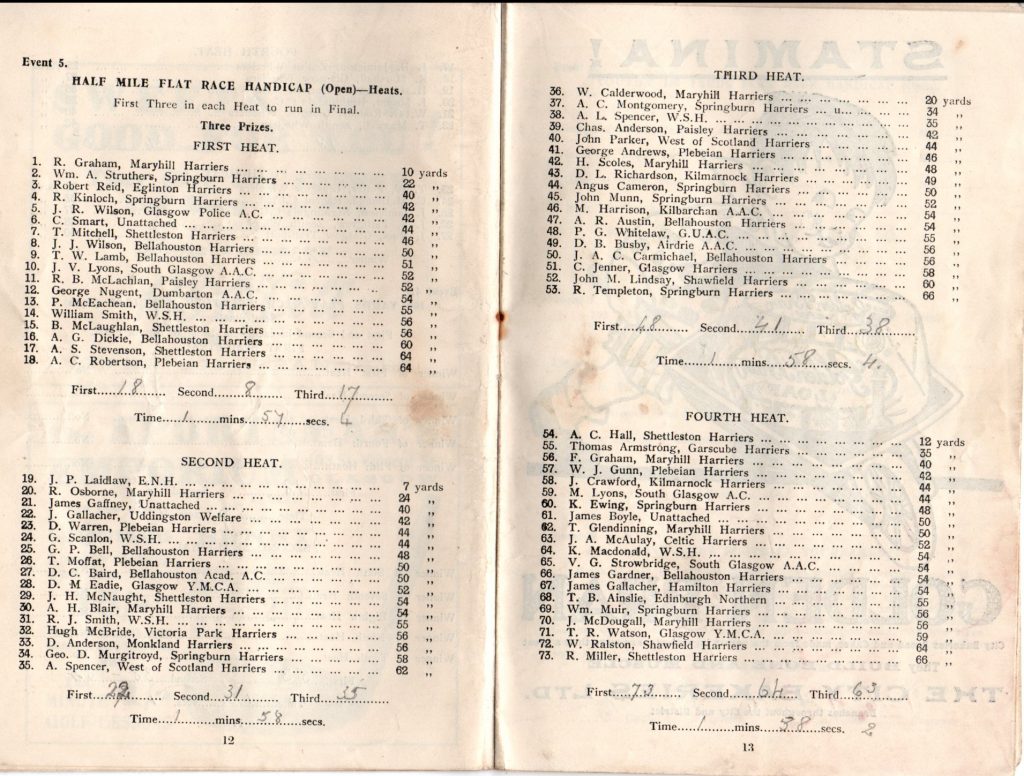 Event 5.
HALF MILE FLAT RACE HANDICAP (Open)—Heats.
First Three in each Heat to run in Final.
Three Prizes.
FIRST HEAT.
1. R. Graham, Maryhill Harriers ... 10 yards
2. Wm. A. Struthers, Springburn Harriers ... 22 ,,
3. Robert Reid, Eglinton Harriers ... 40 ,,
4. R. Kinloch, Springburn Harriers ... 42 ,,
5. J. R. Wilson, Glasgow Police A.C. ... 42 ,,
6. C. Smart, Unattached ... 44 ,,
7. T. Mitchell, Shettleston Harriers ... 46 ,,
8. J. J. Wilson, Bellahouston Harriers ... 50 ,,
9. T. W. Lamb, Bellahouston Harriers ... 51 ,,
10. J. V. Lyons, South Glasgow A.A.C. ... 52 ,,
11. R. B. McLachlan, Paisley Harriers ... 52 ,,
12. George Nugent, Dumbarton A.A.C. ... 54 ,,
13. P. McEachean, Bellahouston Harriers ... 55 ,,
14. William Smith, W.S.H. ... 56 ,,
15. B. McLaughlan, Shettleston Harriers ... 56 ,,
16. A. G. Dickie, Bellahouston Harriers ... 60 ,,
17. A. S. Stevenson, Shettleston Harriers ... 64 ,,
18. A. C. Robertson, Plebeian Harriers ... 64 ,,
First....18....... Second.....8....... Third...17.....
Time....1.......mins....57....secs. 4
SECOND HEAT.
19. J. P. Laidlaw, E.N.H. ... 7 yards
20. R. Osborne, Maryhill Harriers ... 24 ,,
21. James Gaffney, Unattached ... 40 ,,
22. J. Gallacher, Uddingston Welfare ... 42 ,,
23. D. Warren, Plebeian Harriers ... 44 ,,
24. G. Scanlon, W.S.H. ... 44 ,,
25. G. P. Bell, Bellahouston Harriers ... 48 ,,
26. T. Moffat, Plebeian Harriers ... 50 ,,
27. D. C. Baird, Bellahouston Acad. A.C. ... 50 ,,
28. D. M Eadie, Glasgow Y.M.C.A. ... 52 ,,
29. J. H. McNaught, Shettleston Harriers ... 54 ,,
30. A. H. Blair, Maryhill Harriers ... 54 ,,
31. R. J. Smith, W.S.H. ... 55 ,,
32. Hugh McBride, Victoria Park Harriers ... 56 ,,
33. D. Anderson, Monkland Harriers ... 56 ,,
34. Geo. D. Murgitroyd, Springburn Harriers ... 58 ,,
35. A. Spencer, West of Scotland Harriers ... 62 ,,
First....22....... Second...31..... Third....35....
Time....1.......mins....58....secs.
12
THIRD HEAT.
36. W. Calderwood, Maryhill Harriers ... 20 yards
37. A. C. Montgomery, Springburn Harriers ... 34 ,,
38. A. L. Spencer, W.S.H. ... 35 ,,
39. Chas. Anderson, Paisley Harriers ... 42 ,,
40. John Parker, West of Scotland Harriers ... 44 ,,
41. George Andrews, Plebeian Harriers ... 46 ,,
42. H. Scoles, Maryhill Harriers ... 48 ,,
43. D. L. Richardson, Kilmarnock Harriers ... 49 ,,
44. Angus Cameron, Springburn Harriers ... 50 ,,
45. John Munn, Springburn Harriers ... 52 ,,
46. M. Harrison, Kilbarchan A.A.C. ... 54 ,,
47. A. R. Austin, Bellahouston Harriers ... 54 ,,
48. P. G. Whitelaw, G.U.A.C. ... 55 ,,
49. D. B. Busby, Airdrie A.A.C. ... 56 ,,
50. J. A. C. Carmichael, Bellahouston Harriers ... 56 ,,
51. C. Jenner, Glasgow Harriers ... 58 ,,
52. John M. Lindsay, Shawfield Harriers ... 60 ,,
53. R. Templeton, Springburn Harriers ... 66 ,,
First....48....... Second....41..... Third...38.....
Time....1.......mins....58....secs. 4.
FOURTH HEAT.
54. A. C. Hall, Shettleston Harriers ... 12 yards
55. Thomas Armstrong, Garscube Harriers ... 35 ,,
56. F. Graham, Maryhill Harriers ... 40 ,,
57. W. J. Gunn, Plebeian Harriers ... 42 ,,
58. J. Crawford, Kilmarnock Harriers ... 44 ,,
59. M. Lyons, South Glasgow A.C. ... 44 ,,
60. K. Ewing, Springburn Harriers ... 48 ,,
61. James Boyle, Unattached ... 50 ,,
62. T. Glendinning, Maryhill Harriers ... 50 ,,
63. J. A. McAulay, Celtic Harriers ... 52 ,,
64. K. Macdonald, W.S.H. ... 54 ,,
65. V. G. Strowbridge, South Glasgow A.A.C. ... 54 ,,
66. James Gardner, Bellahouston Harriers ... 54 ,,
67. James Gallacher, Hamilton Harriers ... 54 ,,
68. T. B. Ainslie, Edinburgh Northern ... 55 ,,
69. Wm. Muir, Springburn Harriers ... 56 ,,
70. J. McDougall, Maryhill Harriers ... 56 ,,
71. T. R. Watson, Glasgow Y.M.C.A. ... 59 ,,
72. W. Ralston, Shawfield Harriers ... 64 ,,
73. R. Miller, Shettleston Harriers ... 66 ,,
First....73....... Second...64..... Third...63.....
Time....1.......mins....58....secs. 2
13